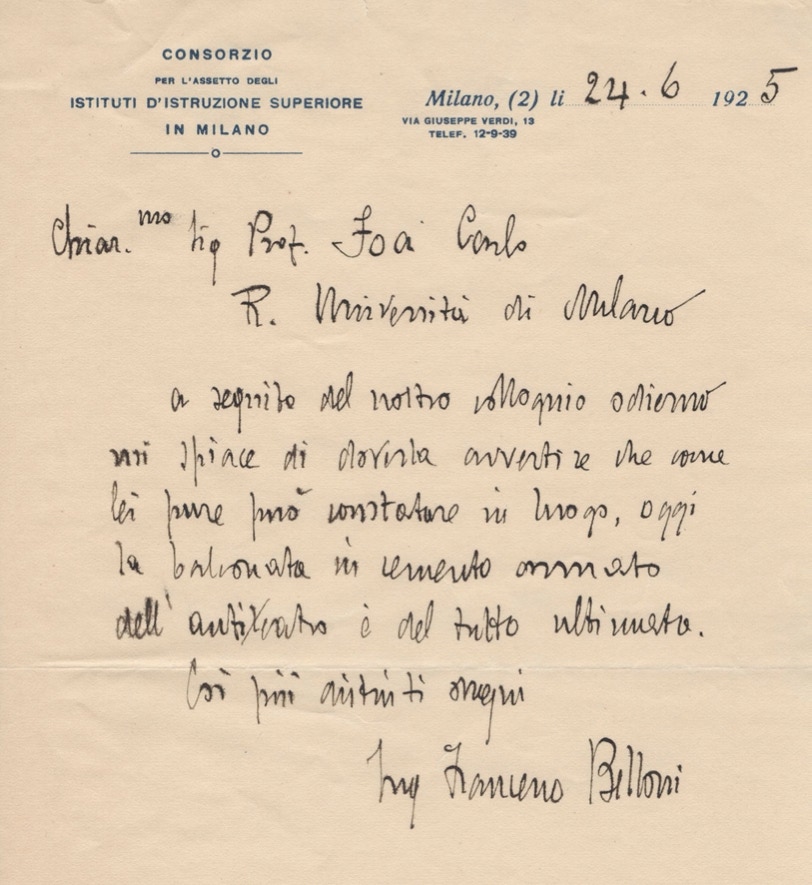 CONSORZIO
PER L'ASSETTO DEGLI
ISTITUTI D'ISTRUZIONE SUPERIORE
IN MILANO
Milano, (2) li 24.6 1925
VIA GIUSEPPE VERDI, 13
TELEF. 12-9-39
Chiar.mo Sig Prof. Foà Carlo
R. Università di Milano
a seguito del nostro colloquio odierno
mi spiace di doverla avvertire che come
lei pure può constatare in luogo, oggi
la balconata in cemento armato
dell'antiteatro è del tutto ultimata.
Coi più distinti ossequi
Ing Francesco Belloni